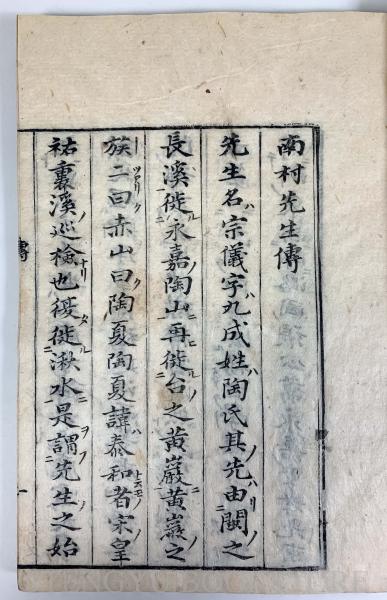 南村先生傳
先生名宗儀字九成姓陶氏其先由閩之
長溪徙永嘉陶山再徙台之黃巖黃巖之
族二曰赤山曰陶夏陶夏諱泰和者宋皇
祐溪巡檢也後徙湫水是謂先生之始
傳